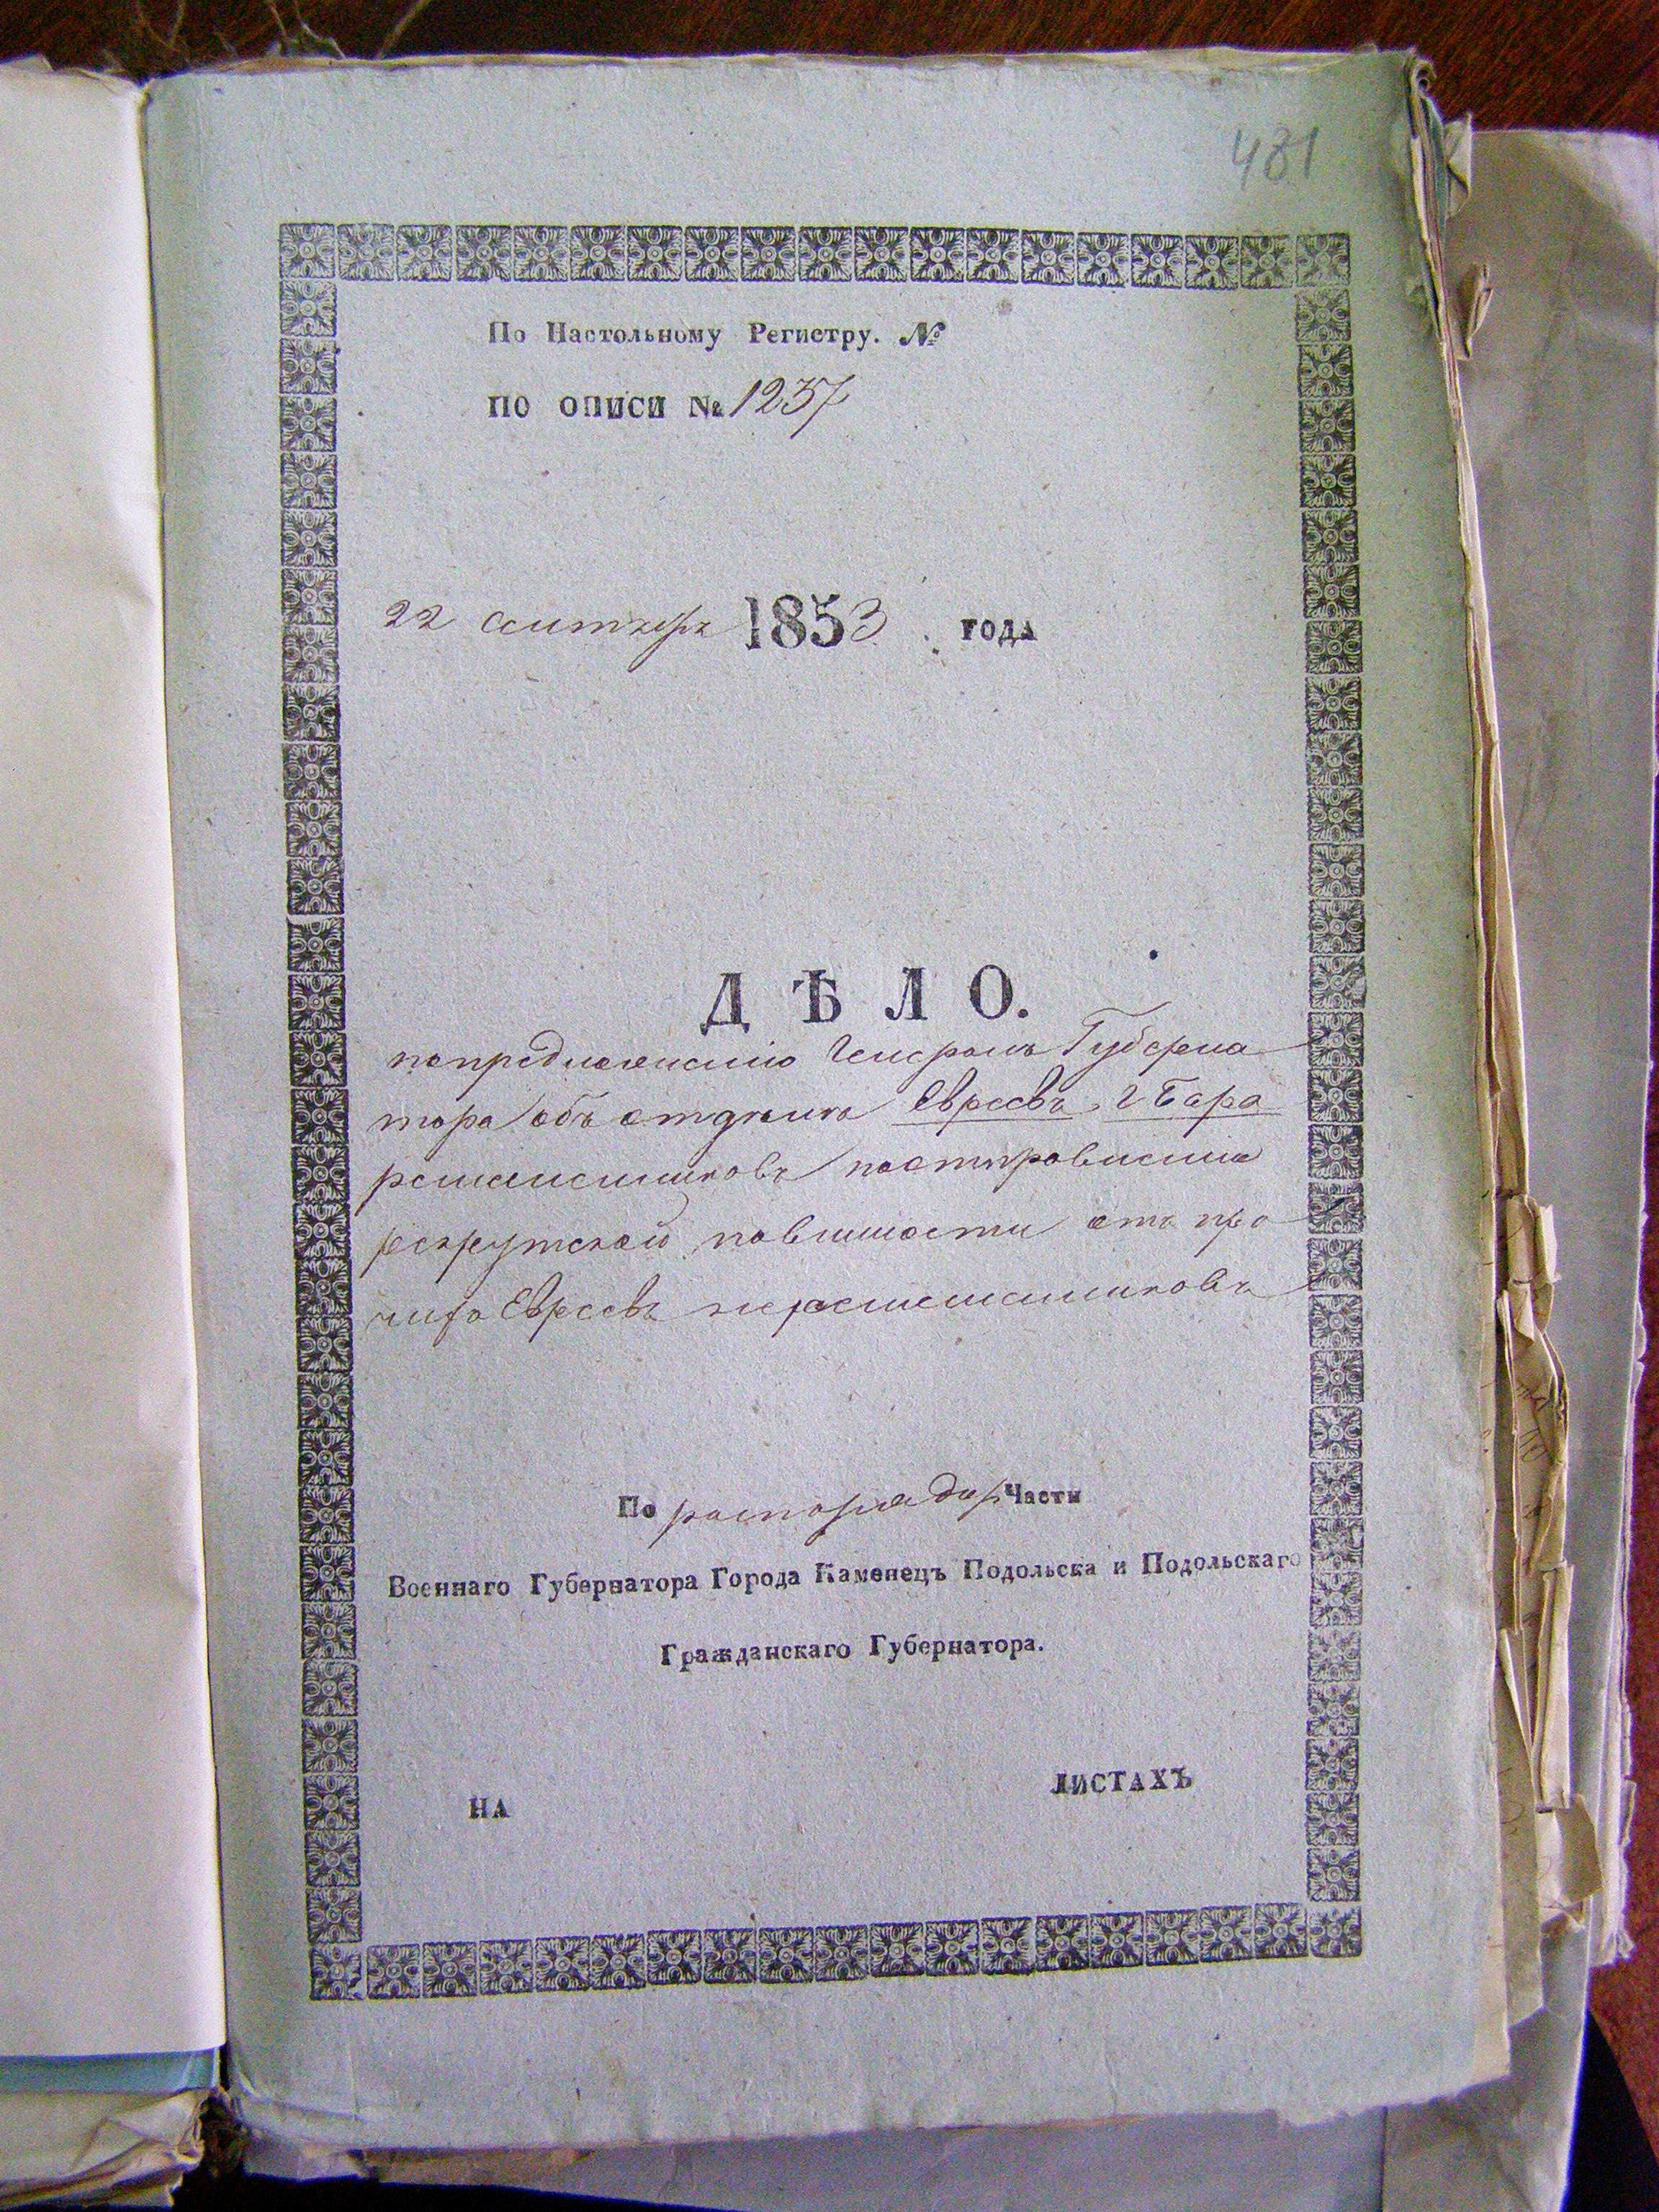 481
По Настольному Регистру. №
ПО ОПИСИ № 1237
22 сентября 1853 . года
ДѢЛО.
по предложенію Генералъ Губерна
тора объ отдѣлѣ Евреевъ г Бара
ремесленниковъ по отправленію
рекрутской повинности отъ про
чихъ Евреевъ неремесленниковъ
По распоряди Части
Военнаго Губернатора Города Каменецъ Подольска и Подольскаго
Гражданскаго Губернатора.
НА ЛИСТАХЪ